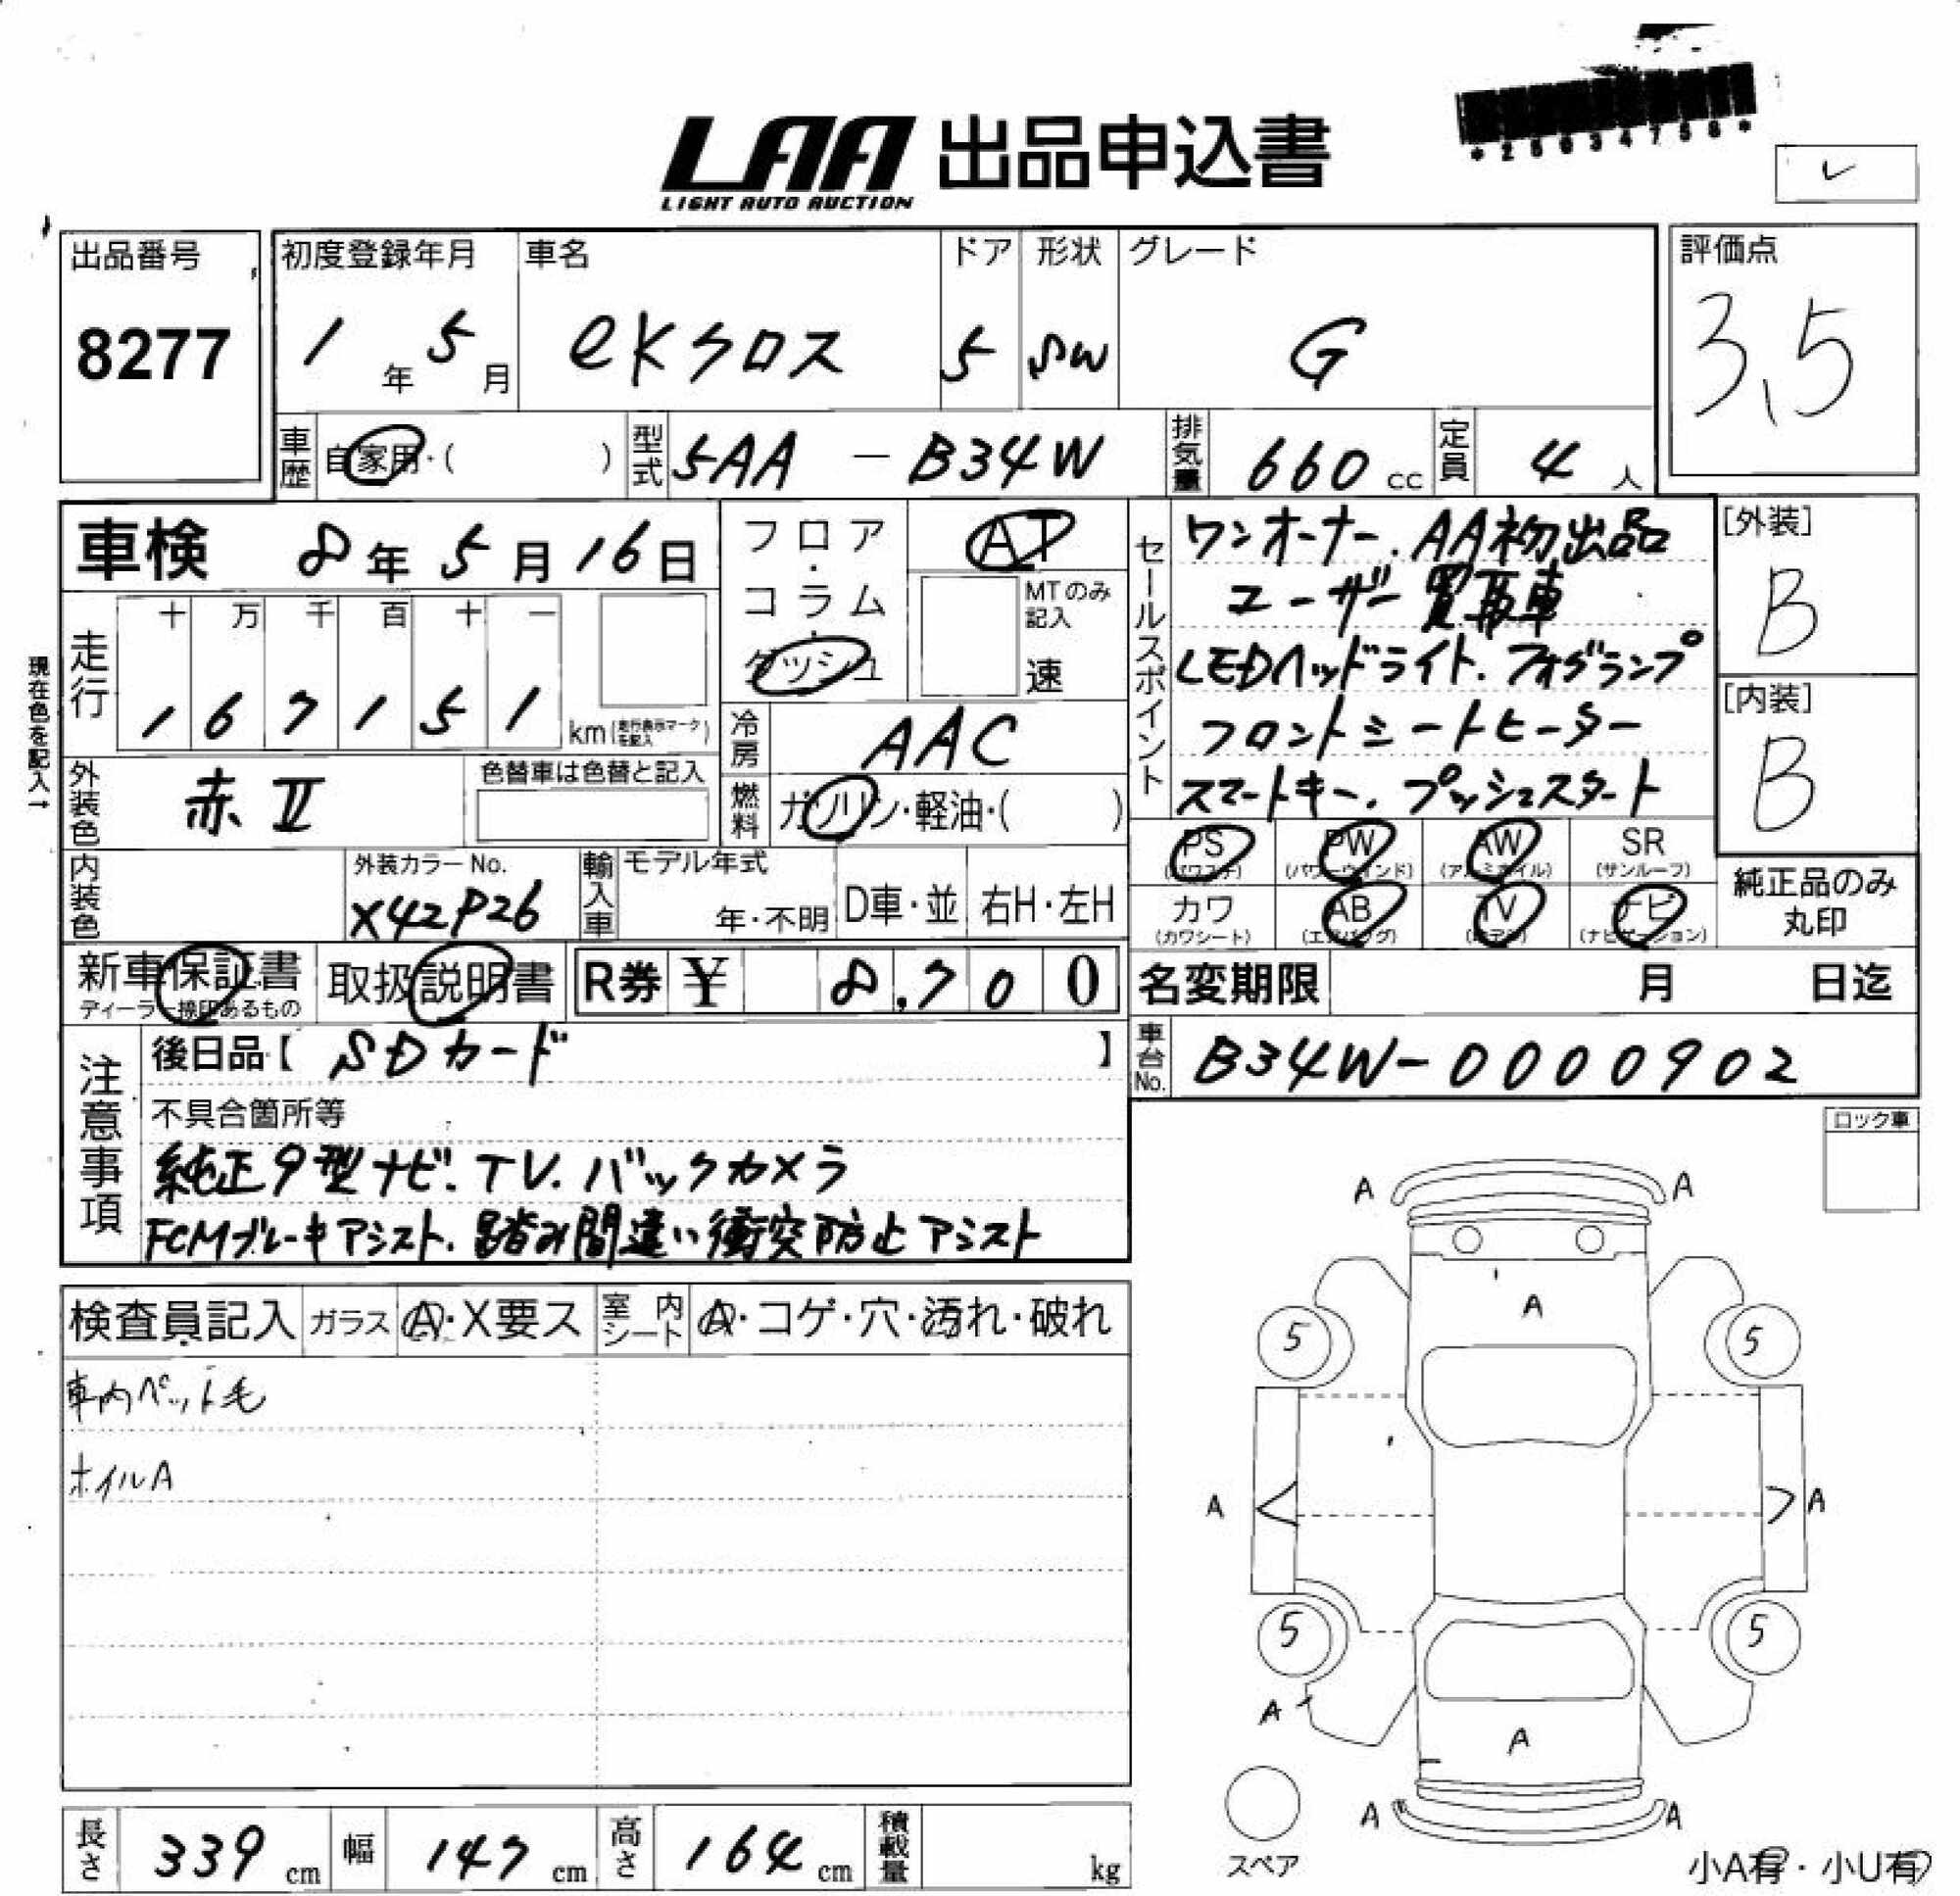 *25034758*
LAA 出品申込書
LIGHT AUTO AUCTION
出品番号
8277
初度登録年月
1年 5月
車名
eKクロス
ドア
5
形状
SW
グレード
G
評価点
3.5
車歴 自家用・( )
型式 5AA - B34W
排気量 660 cc
定員 4人
車検 8年 5月 16日
フロア・コラム・ダッシュ
AT
MTのみ記入
速
現在色を記入→
走行
十 万 千 百 十 一
1 6 7 1 5 1
km(走行表示マークを記入)
冷房 AAC
外装色 赤Ⅱ
色替車は色替と記入
燃料 ガソリン・軽油・( )
内装色
外装カラーNo.
X42P26
輸入車
モデル年式
年・不明
D車・並
右H・左H
セールスポイント
ワンオーナー.AA初出品
ユーザー買取車
LEDヘッドライト.フォグランプ
フロントシートヒーター
スマートキー.プッシュスタート
[外装]
B
[内装]
B
PS (パワステ)
PW (パワーウィンド)
AW (アルミホイル)
SR (サンルーフ)
カワ (カワシート)
AB (エアバッグ)
TV (テレビ)
ナビ (ナビゲーション)
純正品のみ
丸印
新車保証書
ディーラー捺印あるもの
取扱説明書
R券 ¥ 8,700
名変期限 月 日迄
注意事項
後日品【 SDカード 】
不具合箇所等
純正9型ナビ.TV.バックカメラ
FCMブレーキアシスト.踏み間違い衝突防止アシスト
車台No. B34W-0000902
ロック車
検査員記入
ガラス Ⓐ・X要ス
室内シート Ⓐ・コゲ・穴・汚れ・破れ
車内ペット毛
ホイルA
A A
A
5 5
A A
5 5
A
A
A A
スペア
小A有・小U有
長さ 339 cm
幅 147 cm
高さ 164 cm
積載量 kg